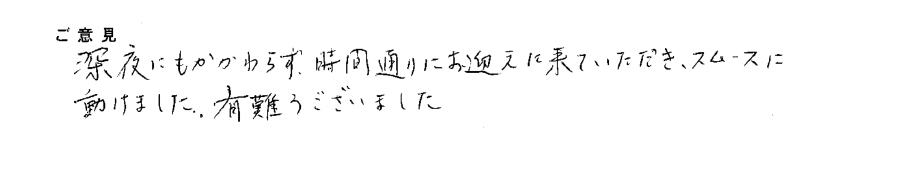 ご意見
深夜にもかかわらず、時間通りにお迎えに来ていただき、スムースに
動けました。有難うございました